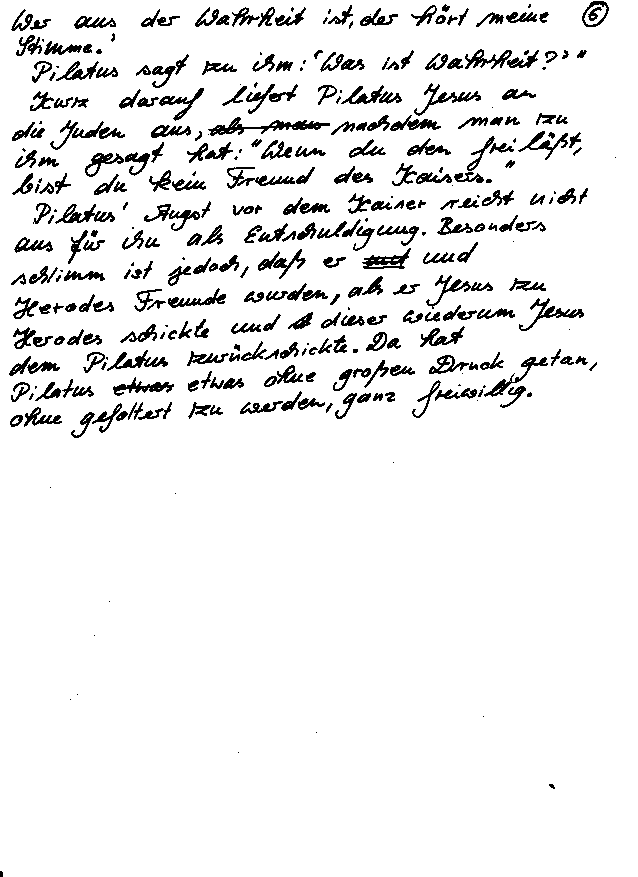 Wer aus der Wahrheit ist, der hört meine 6
Stimme.'
Pilatus sagt zu ihm: 'Was ist Wahrheit?'"
Kurz darauf liefert Pilatus Jesus an
die Juden aus, als man nachdem man zu
ihm gesagt hat: "Wenn du den freiläßt,
bist du kein Freund des Kaisers."
Pilatus' Angst vor dem Kaiser reicht nicht
aus für ihn als Entschuldigung. Besonders
schlimm ist jedoch, daß er und und
Herodes Freunde wurden, als er Jesus zu
Herodes schickte und dieser wiederum Jesus
dem Pilatus zurückschickte. Da hat
Pilatus etwas etwas ohne großen Druck getan,
ohne gefoltert zu werden, ganz freiwillig.